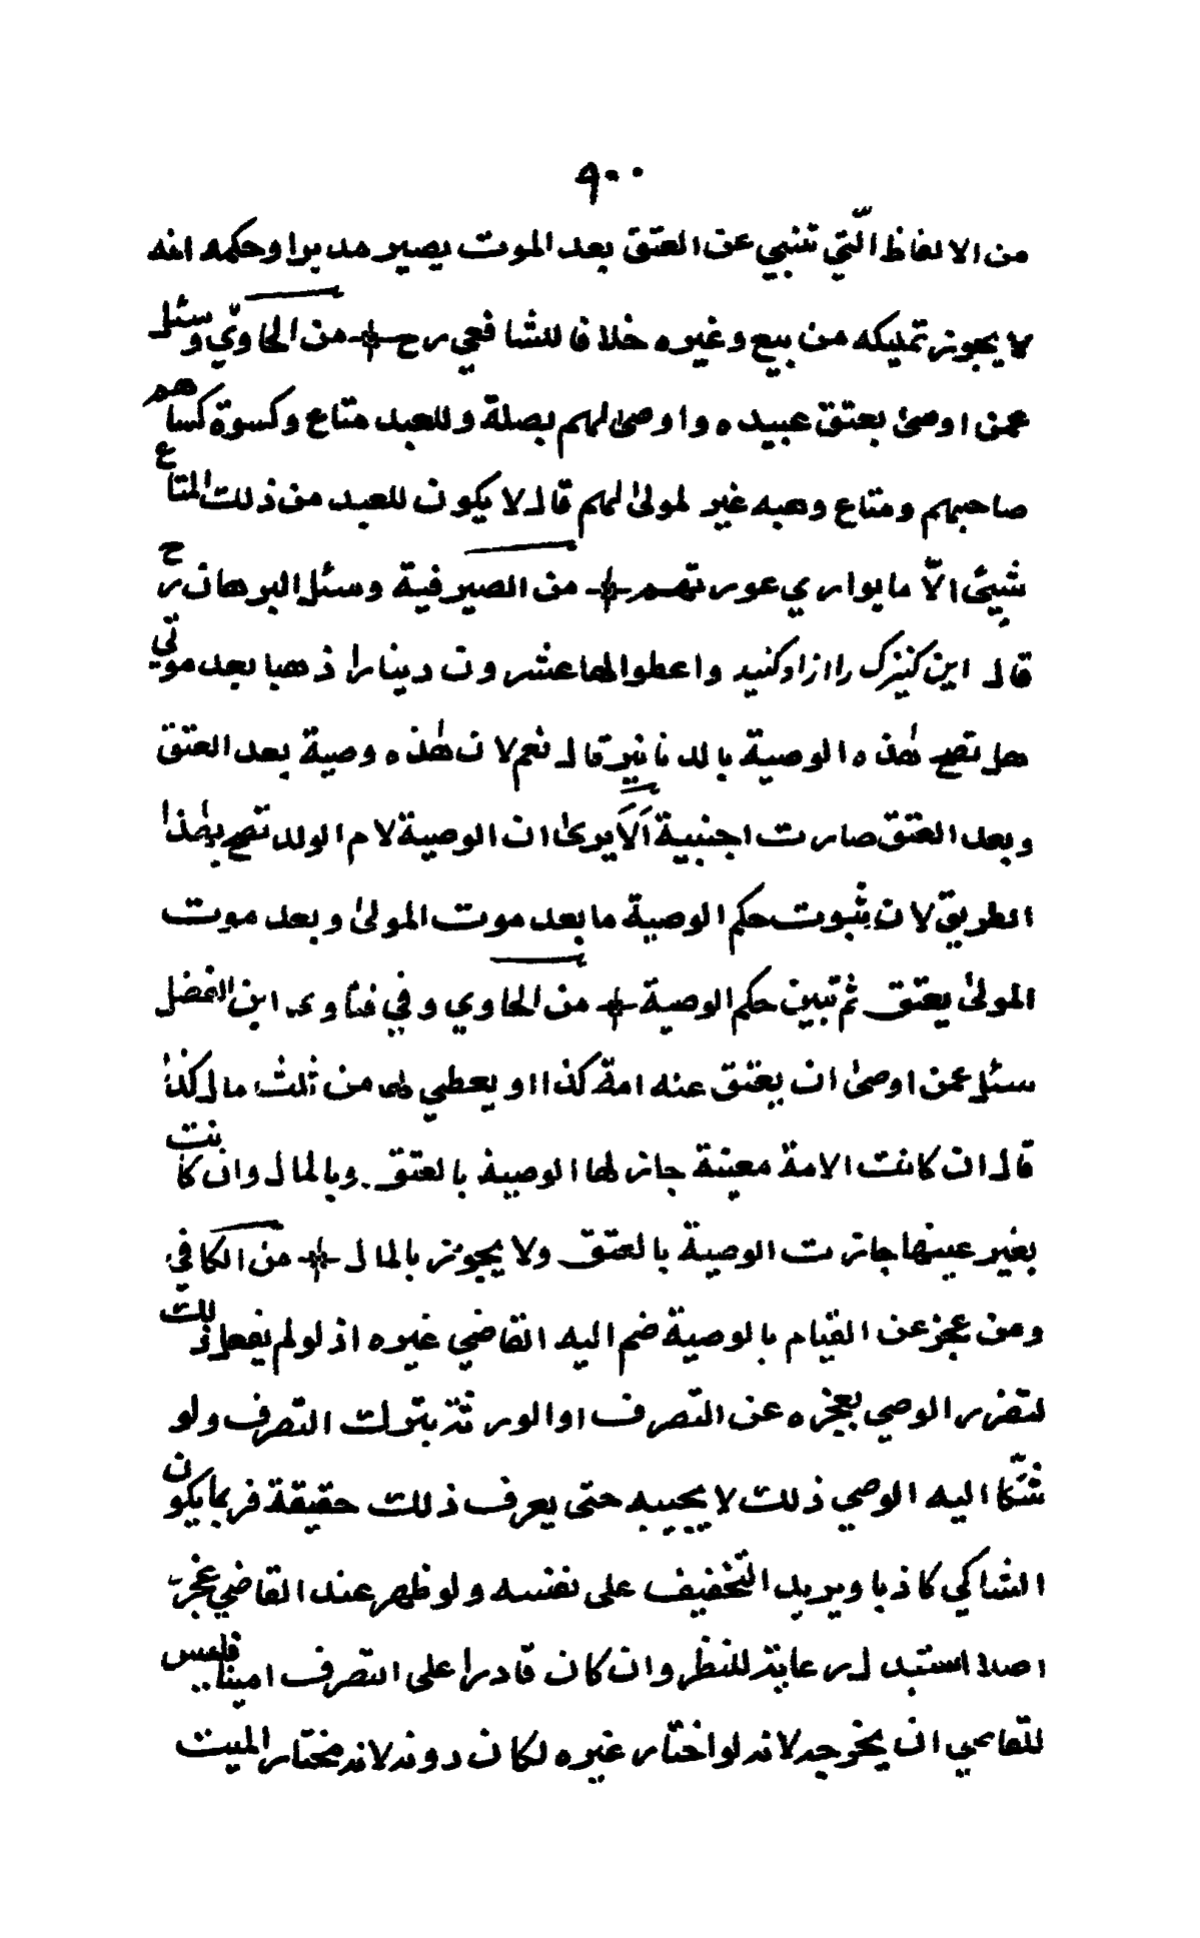 ٩٠٠
من الالفاظ الّتي تنبي عن العتق بعد الموت يصير مدبرا وحكمه انه
لا يجوز تمليكه من بيع وغيره خلافا للشافعي رح من الحاوي وسئل
عمن اوصى بعتق عبيده واوصى لهم بصلة وللعبد متاع وكسوة كساهم
صاحبهم ومتاع وهبه غير لمولى لهم قال لا يكون للعبد من ذلك المتاع
شيئ الّا ما يواري عورتهم من الصيرفية وسئل البرهان رح
قال اين كنيزك را ازاد كنيد واعطوا لها عشرون دينارا ذهبا بعد موتي
هل تصح هٰذه الوصية بالدنانير قال نعم لان هٰذه وصية بعد العتق
وبعد العتق صارت اجنبية اَلَا يرى ان الوصية لام الولد تصح بهٰذا
الطريق لان ثبوت حكم الوصية ما بعد موت المولى وبعد موت
المولى يعتق ثم تبين حكم الوصية من الحاوي وفي فتاوى ابن الفضل
سئل عمن اوصى ان يعتق عنه امة كذا او يعطي لها من ثلث مال كذا
قال ان كانت الامة معينة جاز لها الوصية بالعتق وبالمال وان كانت
بغير عينها جازت الوصية بالعتق ولا يجوز بالمال من الكافي
ومن عجز عن القيام بالوصية ضم اليه القاضي غيره اذ لو لم يفعل ذلك
لتضرر الوصي بعجزه عن التصرف او الورثة بترك التصرف ولو
شكا اليه الوصي ذلك لا يجيبه حتى يعرف ذلك حقيقة فربما يكون
الشاكي كاذبا ويريد التخفيف على نفسه ولو ظهر عند القاضي عجزه
اصلا استبدل رعاية للنظر وان كان قادرا على التصرف امينا فليس
للقاضي ان يخرجه لانه لو اختار غيره لكان دونه لانه مختار الميت